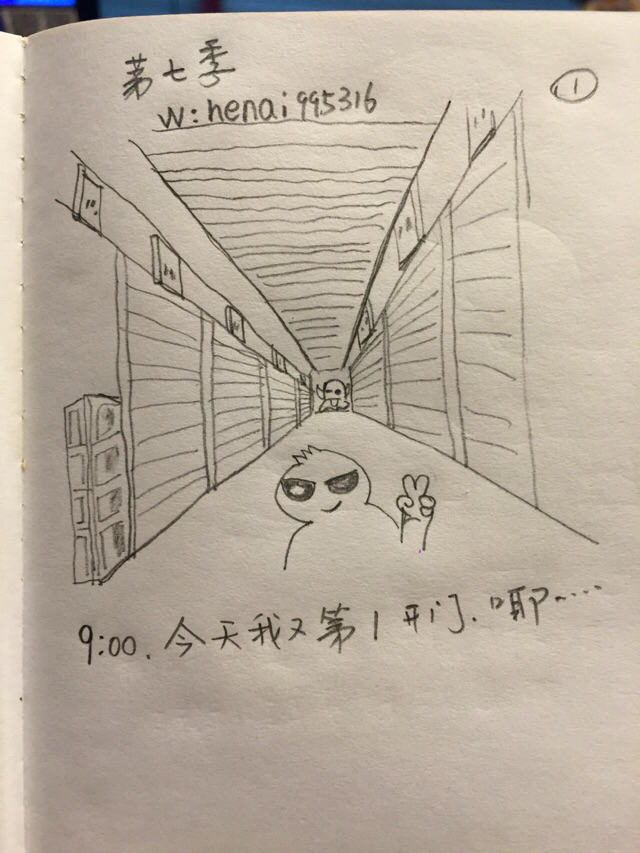 第七季
①
w:henai995316
9:00.今天我又第1开门.耶~····